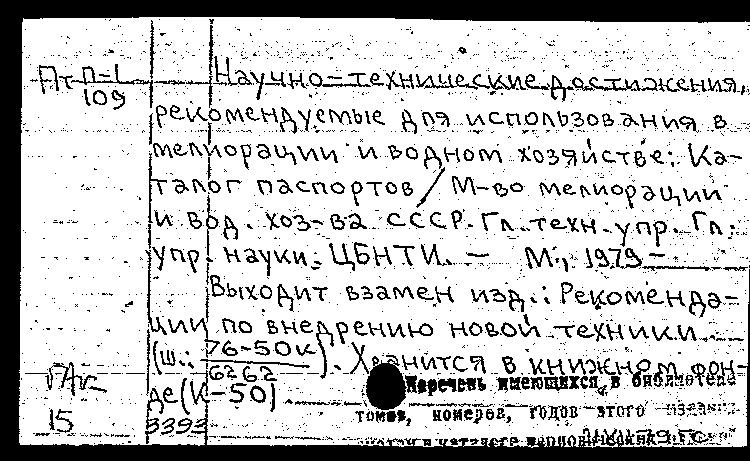 Пт п-1
109
Научно-технические достижения,
рекомендуемые для использования в
мелиорации и водном хозяйстве: Ка-
талог паспортов / М-во мелиорации
и вод. хоз-ва СССР. Гл. техн. упр. Гл.
упр. науки. ЦБНТИ. — М., 1979 -
Выходит взамен изд.: Рекоменда-
ции по внедрению новой техники.
(ш.: 76-50к/6262). Хранится в книжном фон-
де (К-50)
15
3393
Перечень имеющихся в библиотеке
томов, номеров, годов этого издания